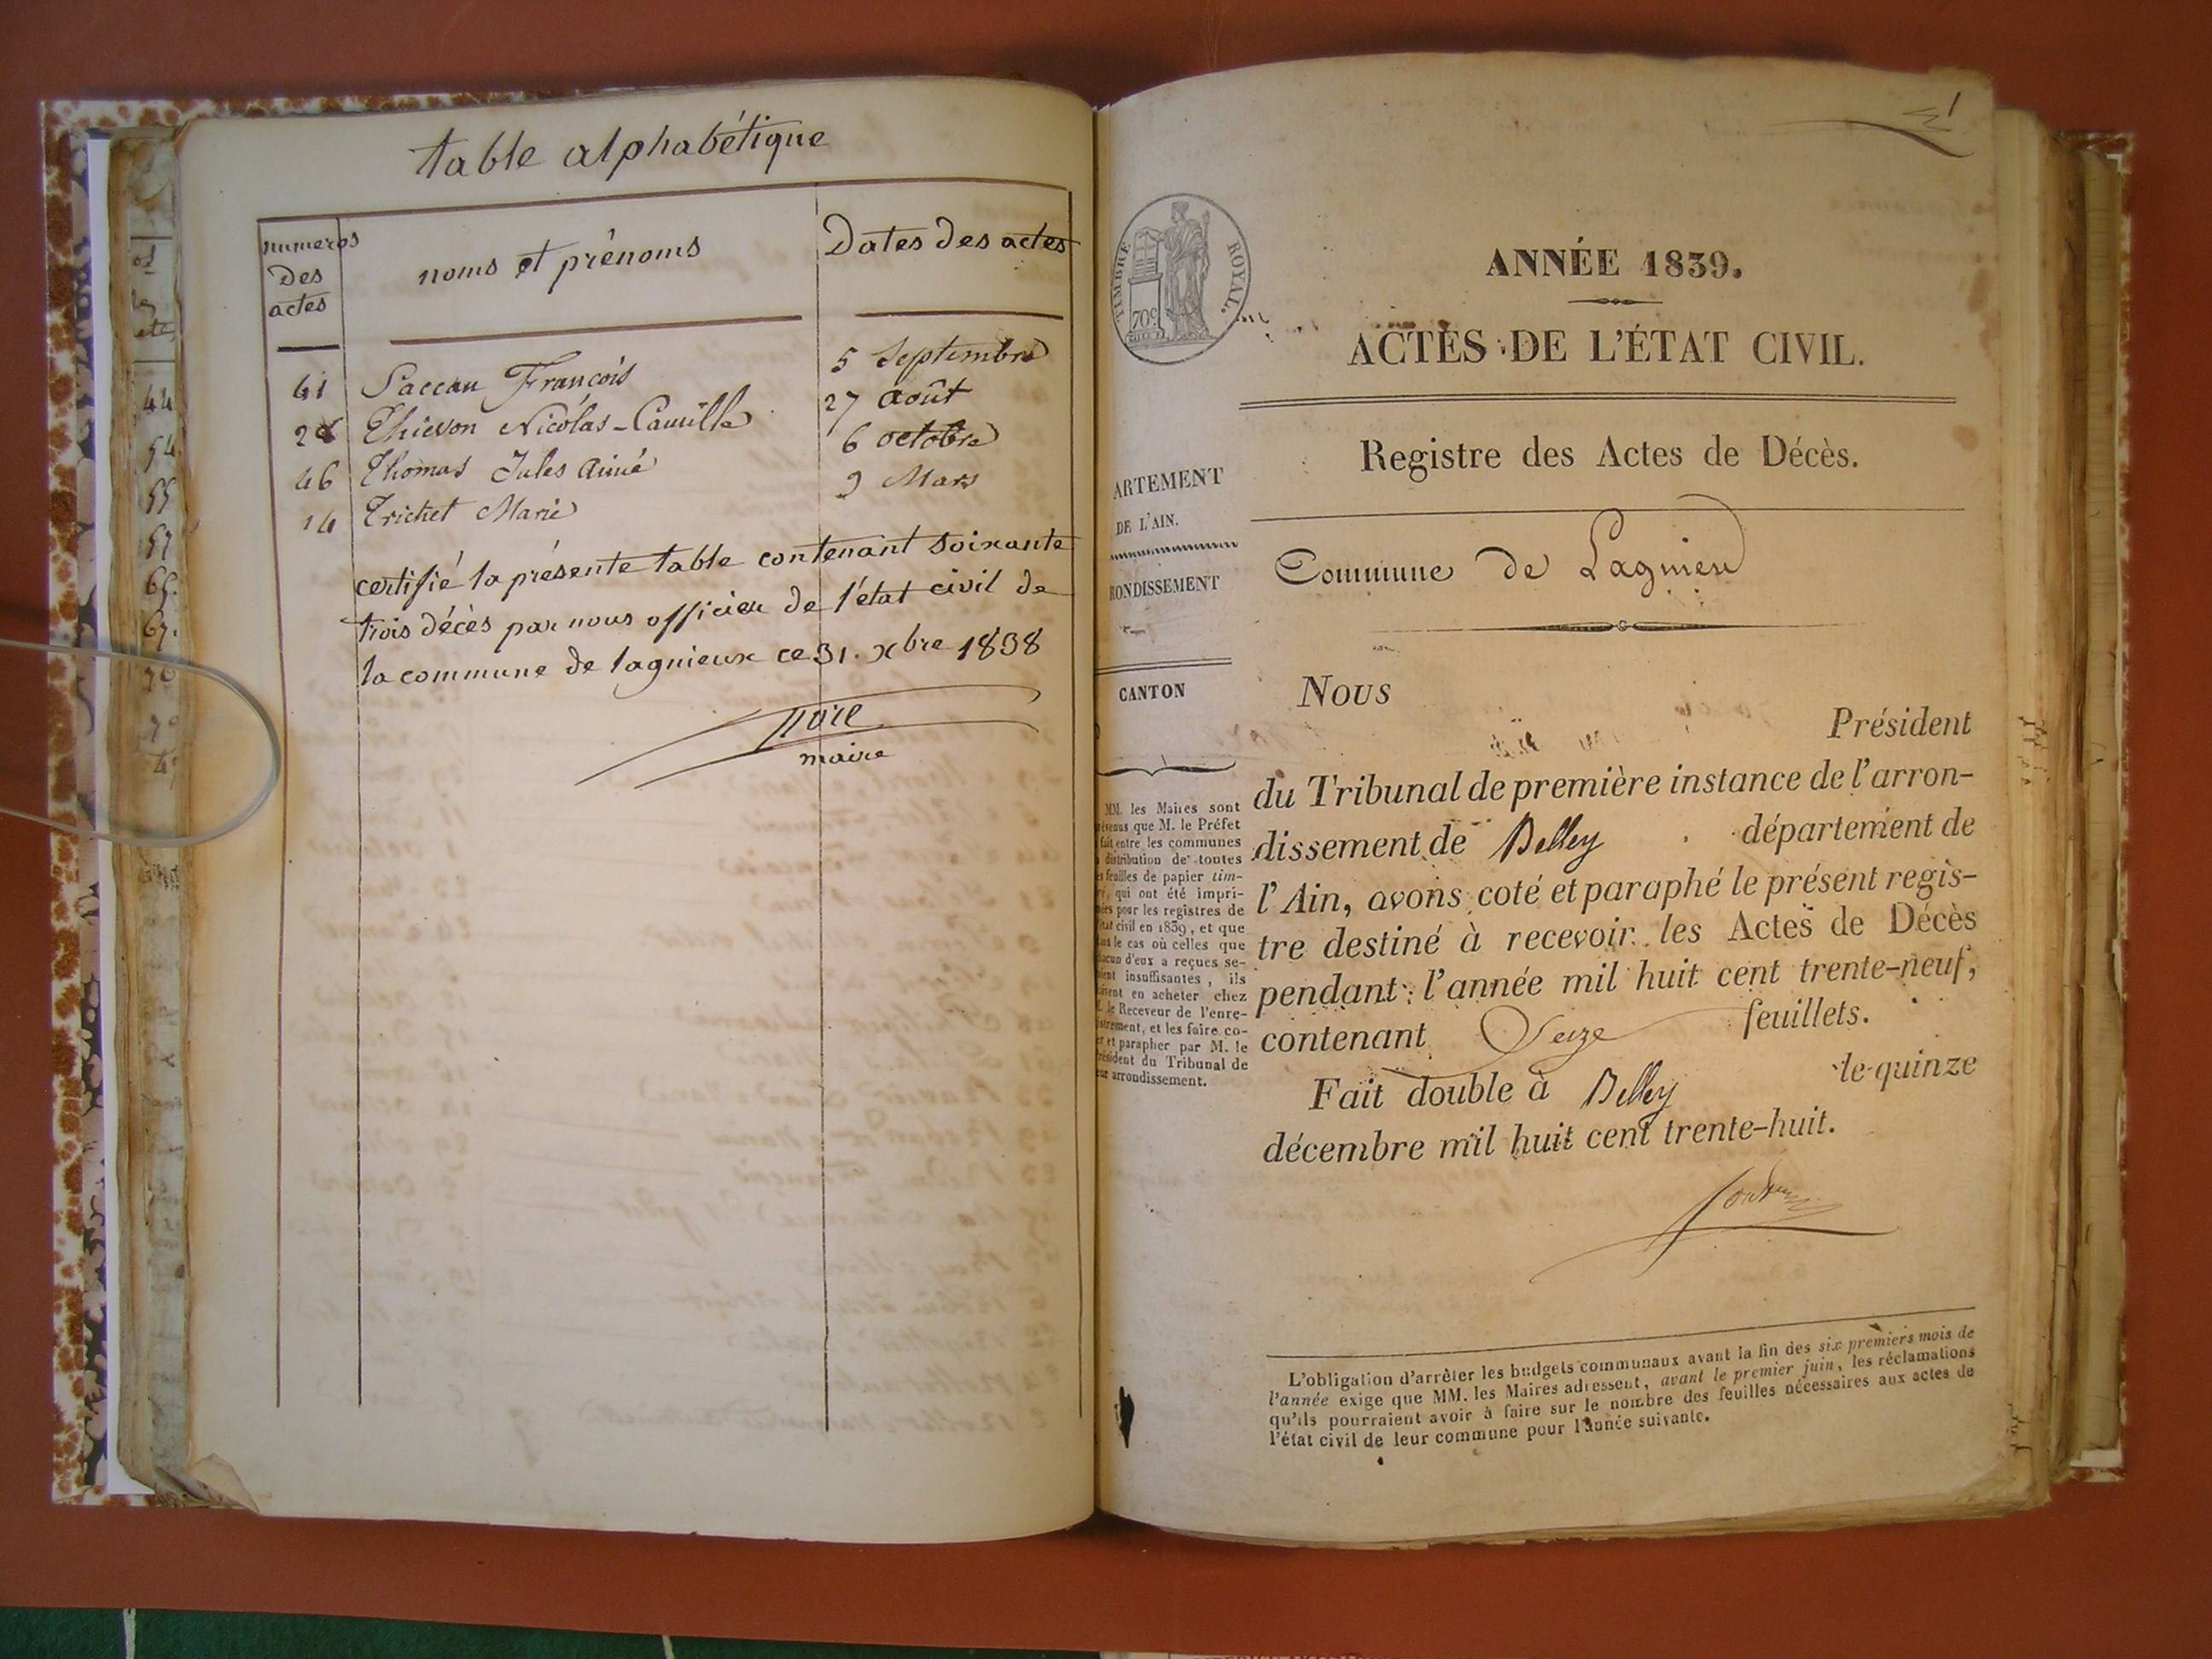 table alphabétique
numeros
des
actes
noms et prénoms
Dates des actes
41 Paccau François 5 Septembre
2 Nicolas-Camille 27 août
46 Thomas Jules aimé 6 octobre
14 Trichet Marie 9 Mars
certifié la présente table contenant soixante
trois décès par nous officier de l'état civil de
la commune de lagnieux ce 31. xbre 1838
maire
44
54
55
57
1
TIMBRE ROYAL.
70c
ANNÉE 1839.
ACTES DE L'ÉTAT CIVIL.
Registre des Actes de Décès.
ARTEMENT
DE L'AIN.
RONDISSEMENT
CANTON
Commune de Lagnieu
Nous
Président
du Tribunal de première instance de l'arron-
dissement de Belley département de
l'Ain, avons coté et paraphé le présent regis-
tre destiné à recevoir les Actes de Décès
pendant l'année mil huit cent trente-neuf,
contenant Seize feuillets.
Fait double à Belley le quinze
décembre mil huit cent trente-huit.
MM. les Maires sont
que M. le Préfet
fait entre les communes
distribution de toutes
feuilles de papier tim-
qui ont été impri-
pour les registres de
civil en 1839, et que
le cas où celles que
d'eux a reçues se-
insuffisantes, ils
en acheter chez
le Receveur de l'enre-
et les faire co-
et parapher par M. le
du Tribunal de
arrondissement.
L'obligation d'arrêter les budgets communaux avant la fin des six premiers mois de
l'année exige que MM. les Maires adressent, avant le premier juin, les réclamations
qu'ils pourraient avoir à faire sur le nombre des feuilles nécessaires aux actes de
l'état civil de leur commune pour l'année suivante.